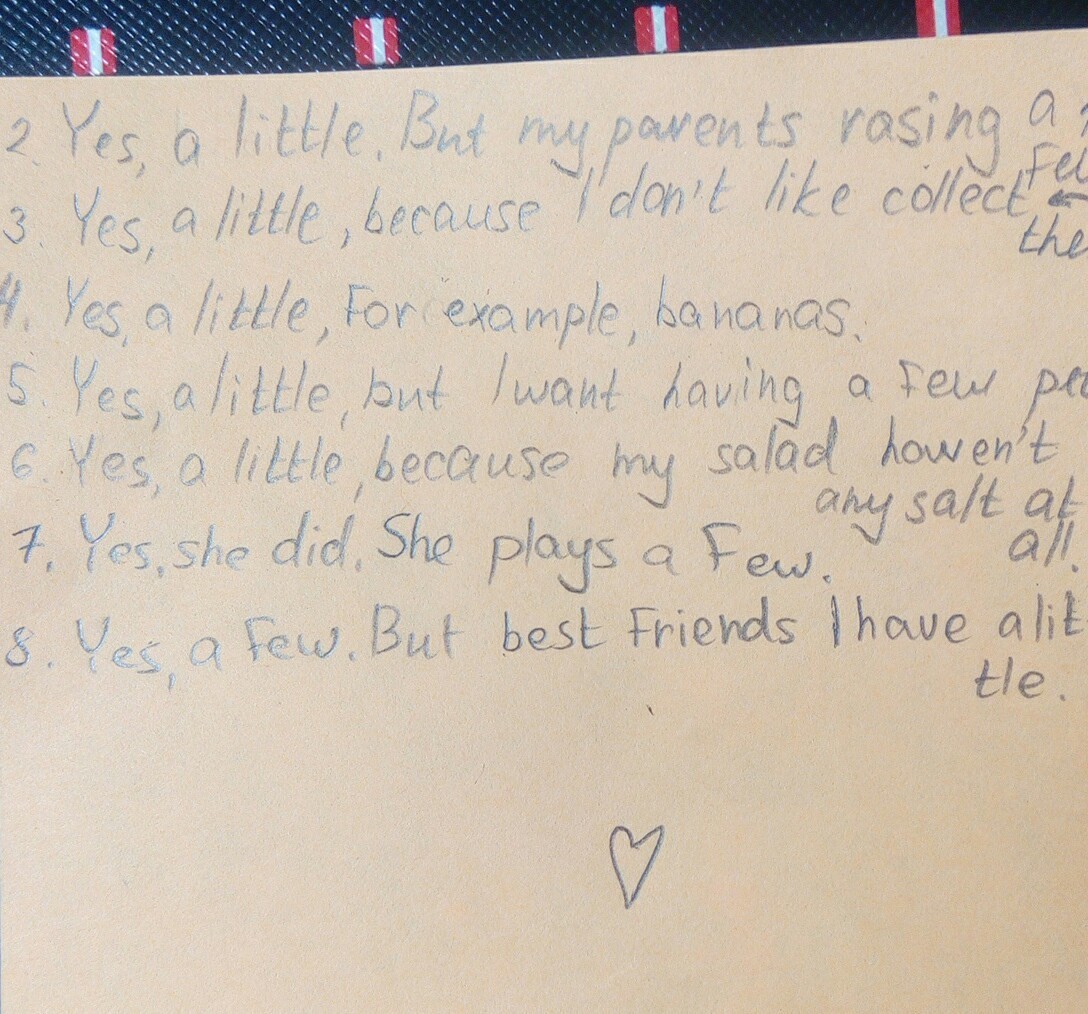 2. Yes, a little. But my parents rasing a
3. Yes, a little, because I don't like collect
4. Yes, a little, For example, bananas.
5. Yes, a little, but I want having a Few
6. Yes, a little, because my salad haven't
any salt at
all.
7. Yes, she did. She plays a Few.
8. Yes, a Few. But best Friends I have a lit
tle.